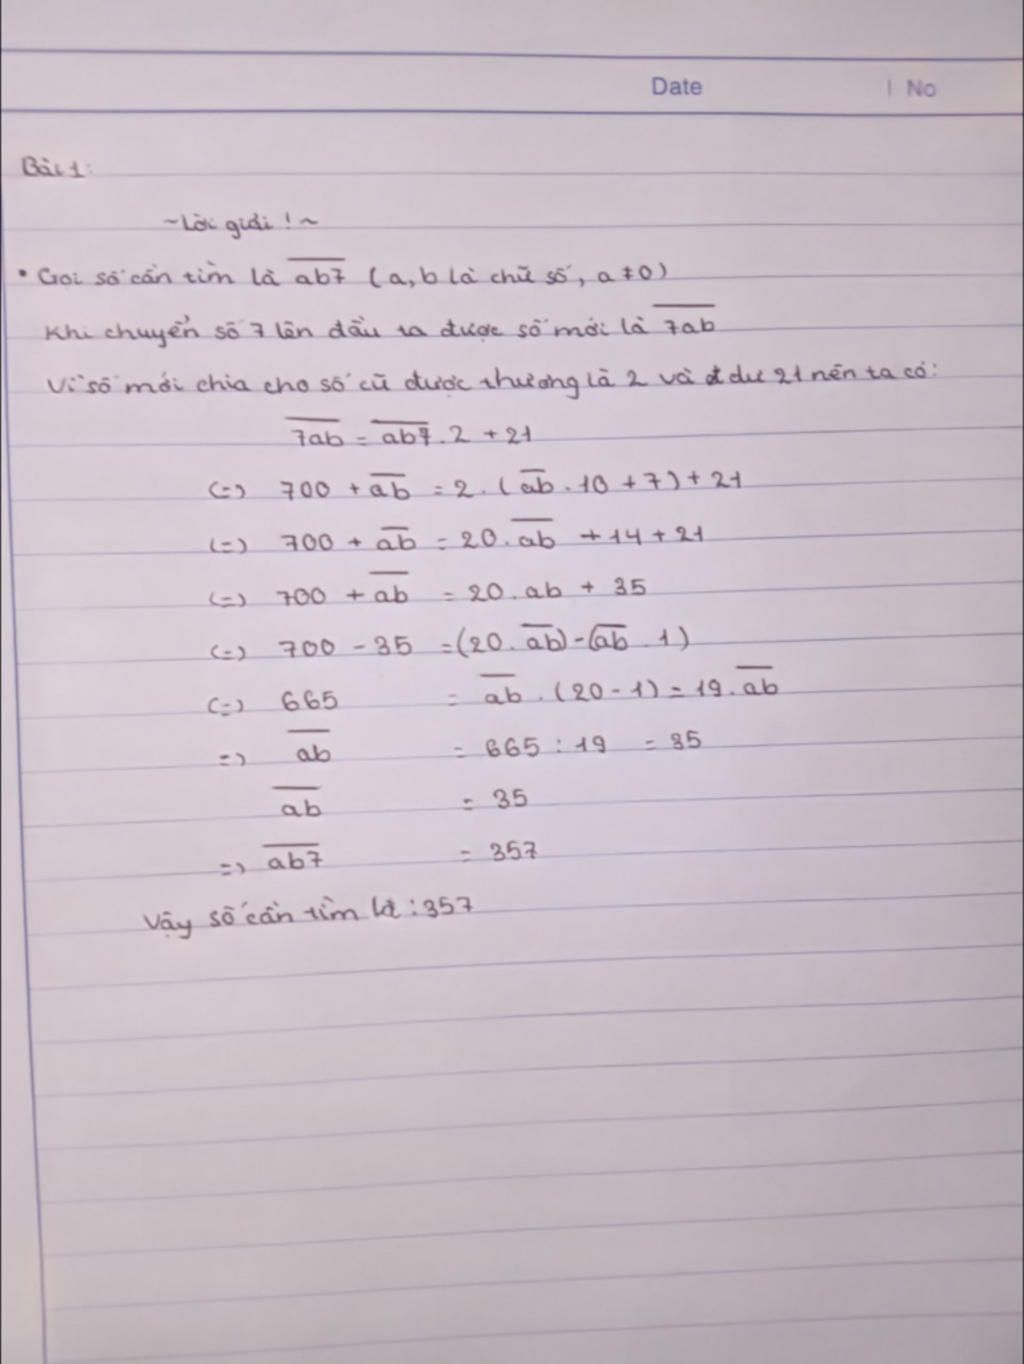 Date | No
Bài 1:
~Lời giải !~
• Gọi số cần tìm là \overline{ab7} (a, b là chữ số, a ≠ 0)
Khi chuyển số 7 lên đầu ta được số mới là \overline{7ab}
Vì số mới chia cho số cũ được thương là 2 và dư 21 nên ta có:
\overline{7ab} = \overline{ab7} . 2 + 21
(=) 700 + \overline{ab} = 2 . (\overline{ab} . 10 + 7) + 21
(=) 700 + \overline{ab} = 20 . \overline{ab} + 14 + 21
(=) 700 + \overline{ab} = 20 . ab + 35
(=) 700 - 35 = (20 . \overline{ab}) - (\overline{ab} . 1)
(=) 665 = \overline{ab} . (20 - 1) = 19 . \overline{ab}
=) \overline{ab} = 665 : 19 = 35
\overline{ab} = 35
=) \overline{ab7} = 357
Vậy số cần tìm là : 357